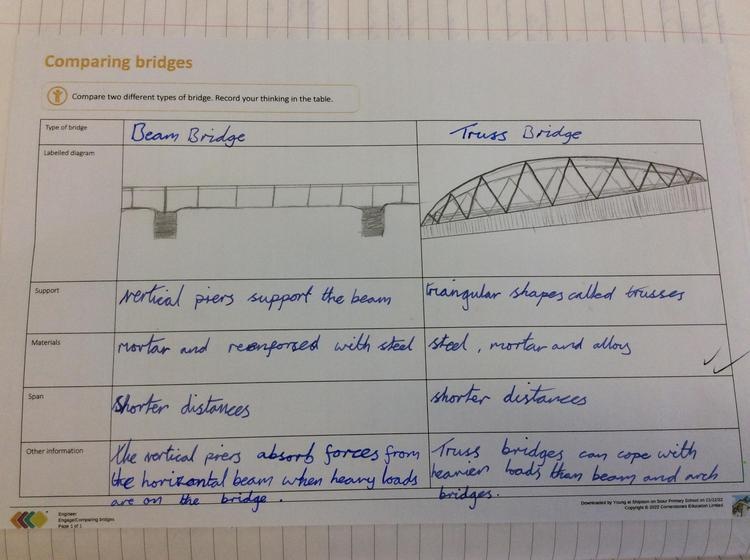 Comparing bridges
Compare two different types of bridge. Record your thinking in the table.
Type of bridge
Beam Bridge
Truss Bridge
Labelled diagram
Support
vertical piers support the beam
triangular shapes called trusses
Materials
mortar and reenforsed with steel
steel, mortar and alloy
Span
shorter distances
shorter distances
Other information
the vertical piers absorb forces from
the horizontal beam when heavy loads
are on the bridge.
Truss bridges can cope with
heavier loads than beam and arch
bridges.
Engineer
Engage/Comparing bridges
Page 1 of 1
Downloaded by Young at Shipston on Stour Primary School on
Copyright © 2022 Cornerstones Education Limited